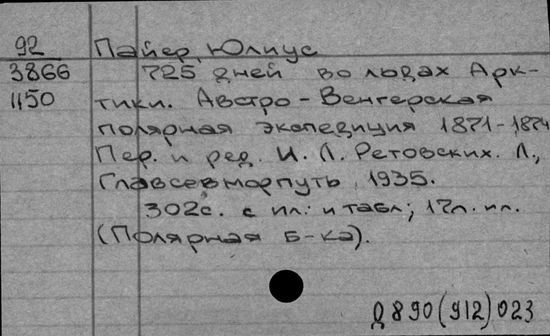 92 Пайер, Юлиус
3866 725 дней во льдах Арк-
1150 тики. Австро-Венгерская
полярная экспедиция 1871-1874
Пер. и ред. И. Л. Ретовских. Л.,
Главсевморпуть, 1935.
302с. с ил. и табл; 17л. ил.
(Полярная Б-ка).
Д890(912)023